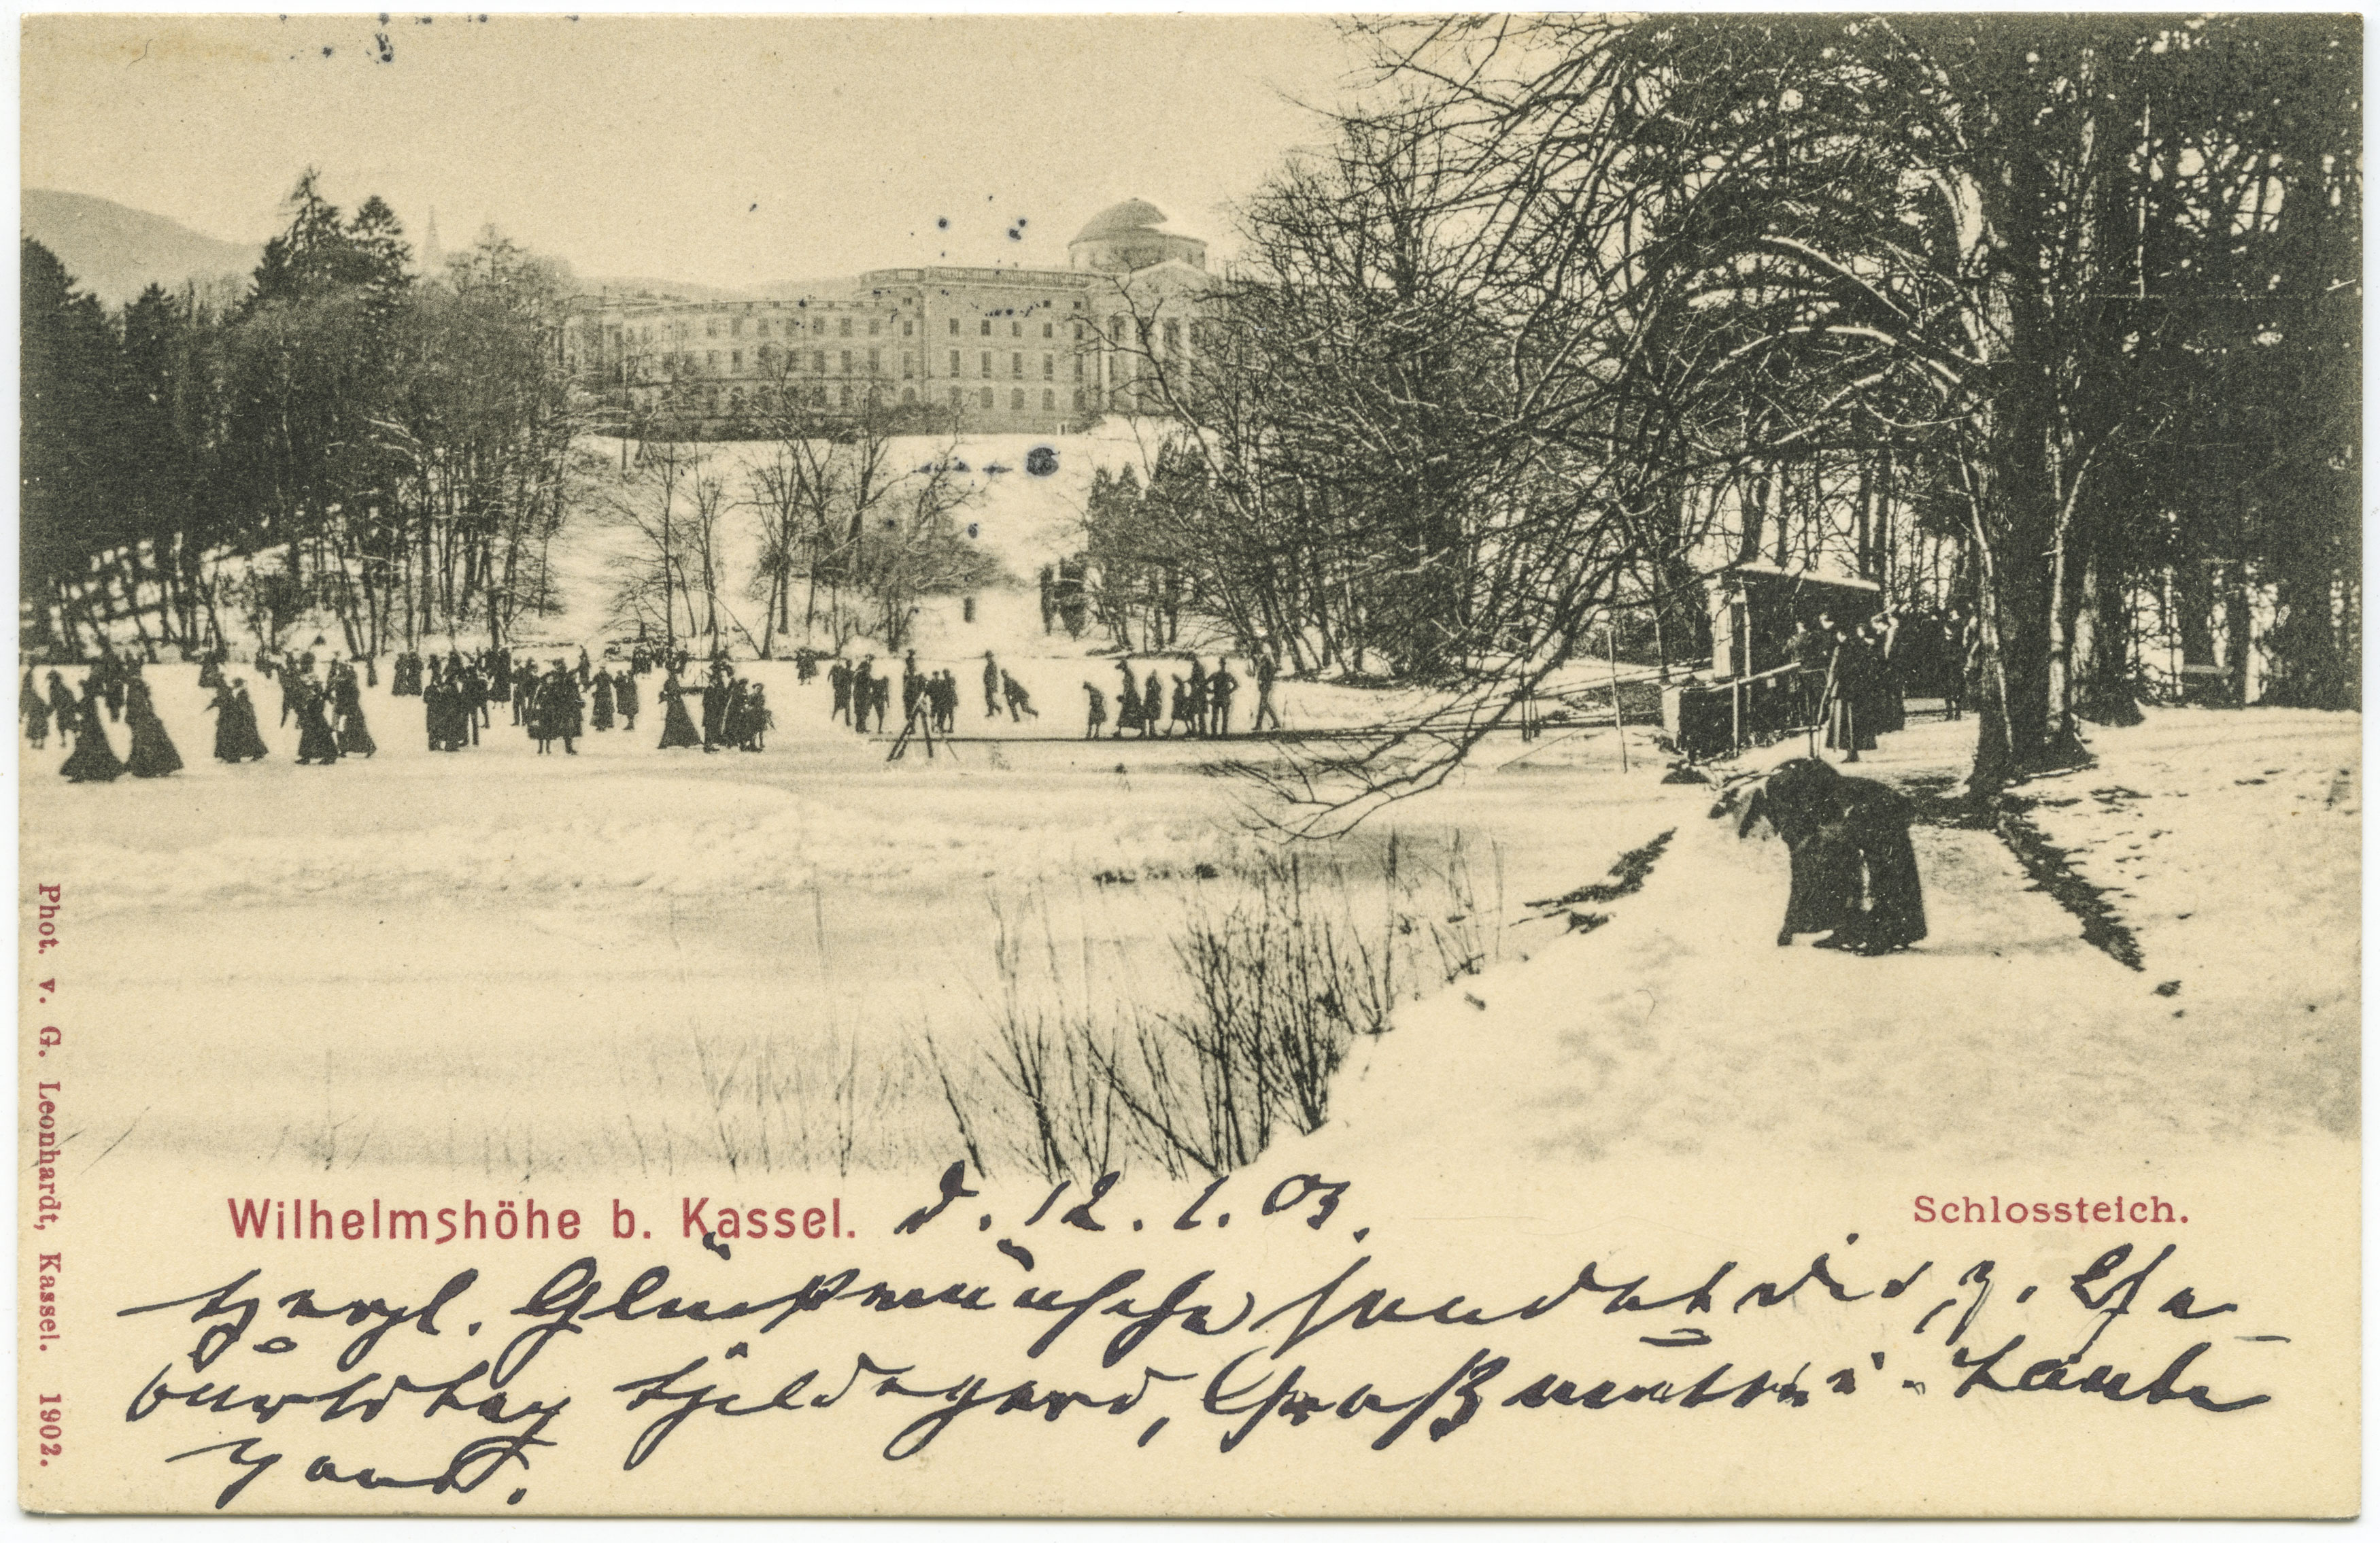 Phot. v. G. Leonhardt, Kassel. 1902.
Wilhelmshöhe b. Kassel. d. 12. 1. 03.
Schlossteich.
Herzl. Glückwünsche sendet Dir z. Ge-
burtstag Hildegard, Großmutter u. Tante